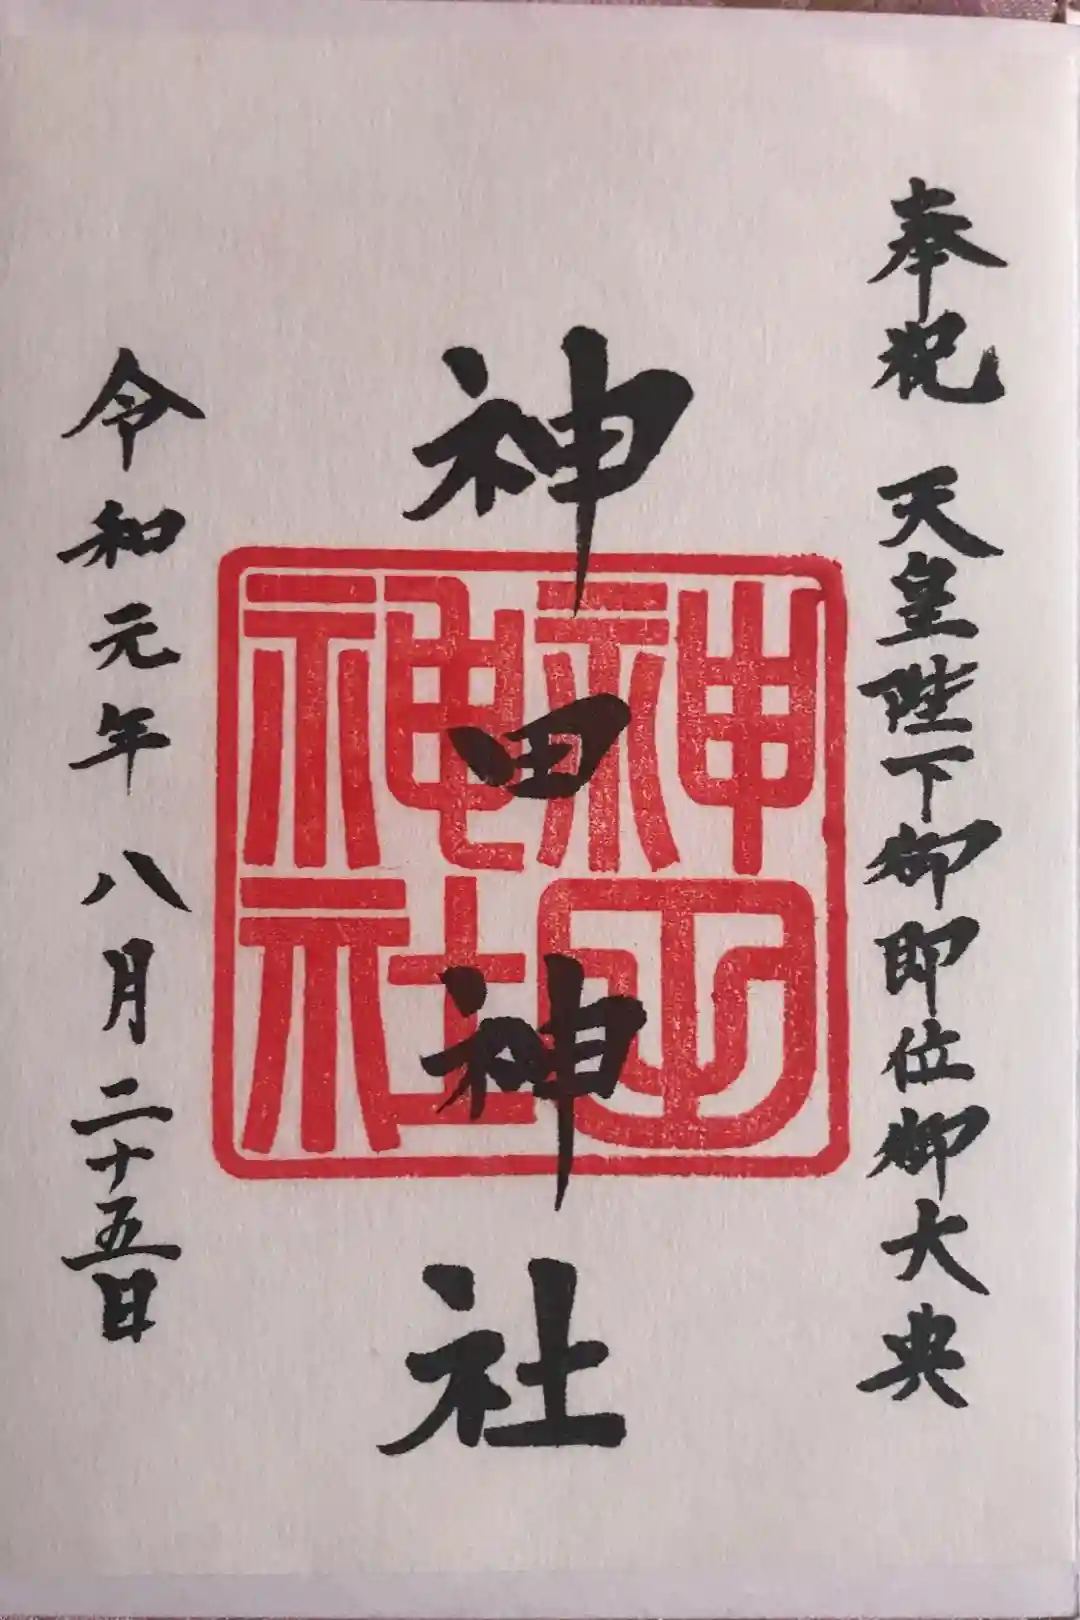 奉祝 天皇陛下御即位御大典
神田神社
神田神社
令和元年八月二十五日